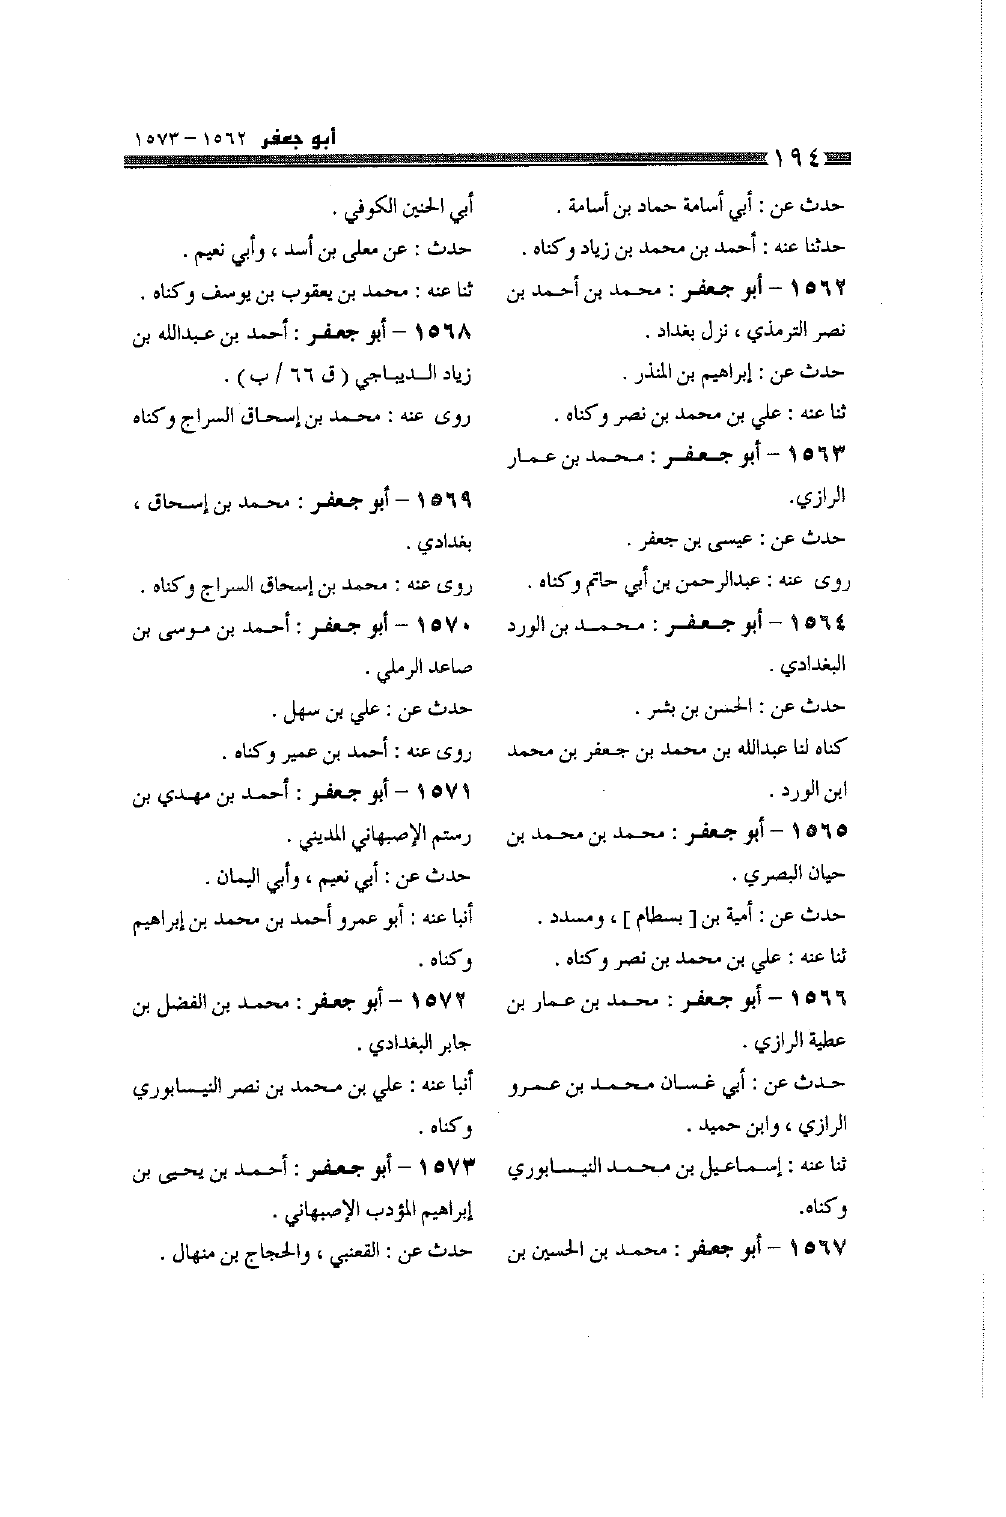 أبو جعفر ١٥٦٢ - ١٥٧٣
١٩٤
حدث عن : أبي أسامة حماد بن أسامة .
حدثنا عنه : أحمد بن محمد بن زياد وكناه .
١٥٦٢ - أبو جعفر : محمد بن أحمد بن
نصر الترمذي ، نزل بغداد .
حدث عن : إبراهيم بن المنذر .
ثنا عنه : علي بن محمد بن نصر وكناه .
١٥٦٣ - أبو جعفر : محمد بن عمار
الرازي.
حدث عن : عيسى بن جعفر .
روى عنه : عبدالرحمن بن أبي حاتم وكناه .
١٥٦٤ - أبو جعفر : محمد بن الورد
البغدادي .
حدث عن : الحسن بن بشر .
كناه لنا عبدالله بن محمد بن جعفر بن محمد
ابن الورد .
١٥٦٥ - أبو جعفر : محمد بن محمد بن
حيان البصري .
حدث عن : أمية بن [ بسطام ] ، ومسدد .
ثنا عنه : علي بن محمد بن نصر وكناه .
١٥٦٦ - أبو جعفر : محمد بن عمار بن
عطية الرازي .
حدث عن : أبي غسان محمد بن عمرو
الرازي ، وابن حميد .
ثنا عنه : إسماعيل بن محمد النيسابوري
وكناه.
١٥٦٧ - أبو جعفر : محمد بن الحسين بن
أبي الحنين الكوفي .
حدث : عن معلى بن أسد ، وأبي نعيم .
ثنا عنه : محمد بن يعقوب بن يوسف وكناه .
١٥٦٨ - أبو جعفر : أحمد بن عبدالله بن
زياد الديباجي ( ق ٦٦ / ب ) .
روى عنه : محمد بن إسحاق السراج وكناه
١٥٦٩ - أبو جعفر : محمد بن إسحاق ،
بغدادي .
روى عنه : محمد بن إسحاق السراج وكناه .
١٥٧٠ - أبو جعفر : أحمد بن موسى بن
صاعد الرملي .
حدث عن : علي بن سهل .
روى عنه : أحمد بن عمير وكناه .
١٥٧١ - أبو جعفر : أحمد بن مهدي بن
رستم الإصبهاني المديني .
حدث عن : أبي نعيم ، وأبي اليمان .
أنبا عنه : أبو عمرو أحمد بن محمد بن إبراهيم
وكناه .
١٥٧٢ - أبو جعفر : محمد بن الفضل بن
جابر البغدادي .
أنبا عنه : علي بن محمد بن نصر النيسابوري
وكناه .
١٥٧٣ - أبو جعفر : أحمد بن يحيى بن
إبراهيم المؤدب الإصبهاني .
حدث عن : القعنبي ، والحجاج بن منهال .